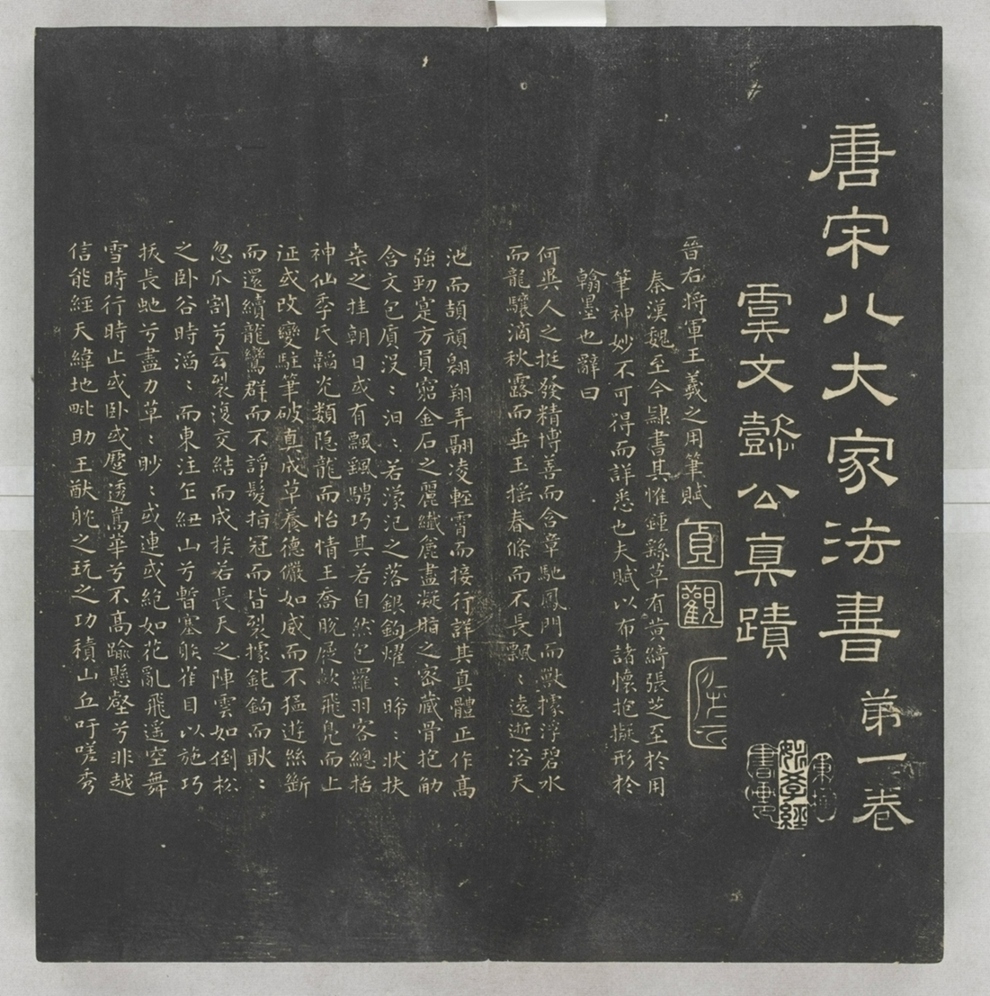 唐宋八大家法書 第一卷
虞文懿公真蹟
晉右將軍王羲之用筆賦
貞觀
秦漢魏至今隸書其惟鍾繇草有黃綺張芝至於用
筆神妙不可得而詳悉也夫賦以布諸懷抱擬形於
翰墨也辭曰
何異人之挺發精博善而含章馳鳳門而獸據浮碧水
而龍驤滴秋露而垂玉搖春條而不長飄〻遠逝浴天
池而頡頏翱翔弄翮淩輕霄而接行詳其真體正作高
強勁寔方員窮金石之麗纖麁盡凝脂之密藏骨抱筋
含文包質沒〻汩〻若濛汜之落銀鉤燿〻晞〻狀扶
桒之挂朝日或有飄颻騁巧其若自然包羅羽客總括
神仙季氏韜光類隱龍而怡情王喬脫屣歘飛鳧而上
征或改變駐筆破真成草養德儼如威而不猛遊絲斷
而還續龍鸞群而不諍髮指冠而眥裂據純鉤而耿〻
忽爪割兮玄裂復交結而成族若長天之陣雲如倒松
之卧谷時滔〻而東注乍紐山兮暫塞射雀目以施巧
拔長虵兮盡力草〻眇〻或連或絕如花亂飛遥空舞
雪時行時止或卧或蹷透嵩華兮不高踰懸壑兮非越
信能經天緯地毗助王猷躭之玩之功積山丘吁嗟秀